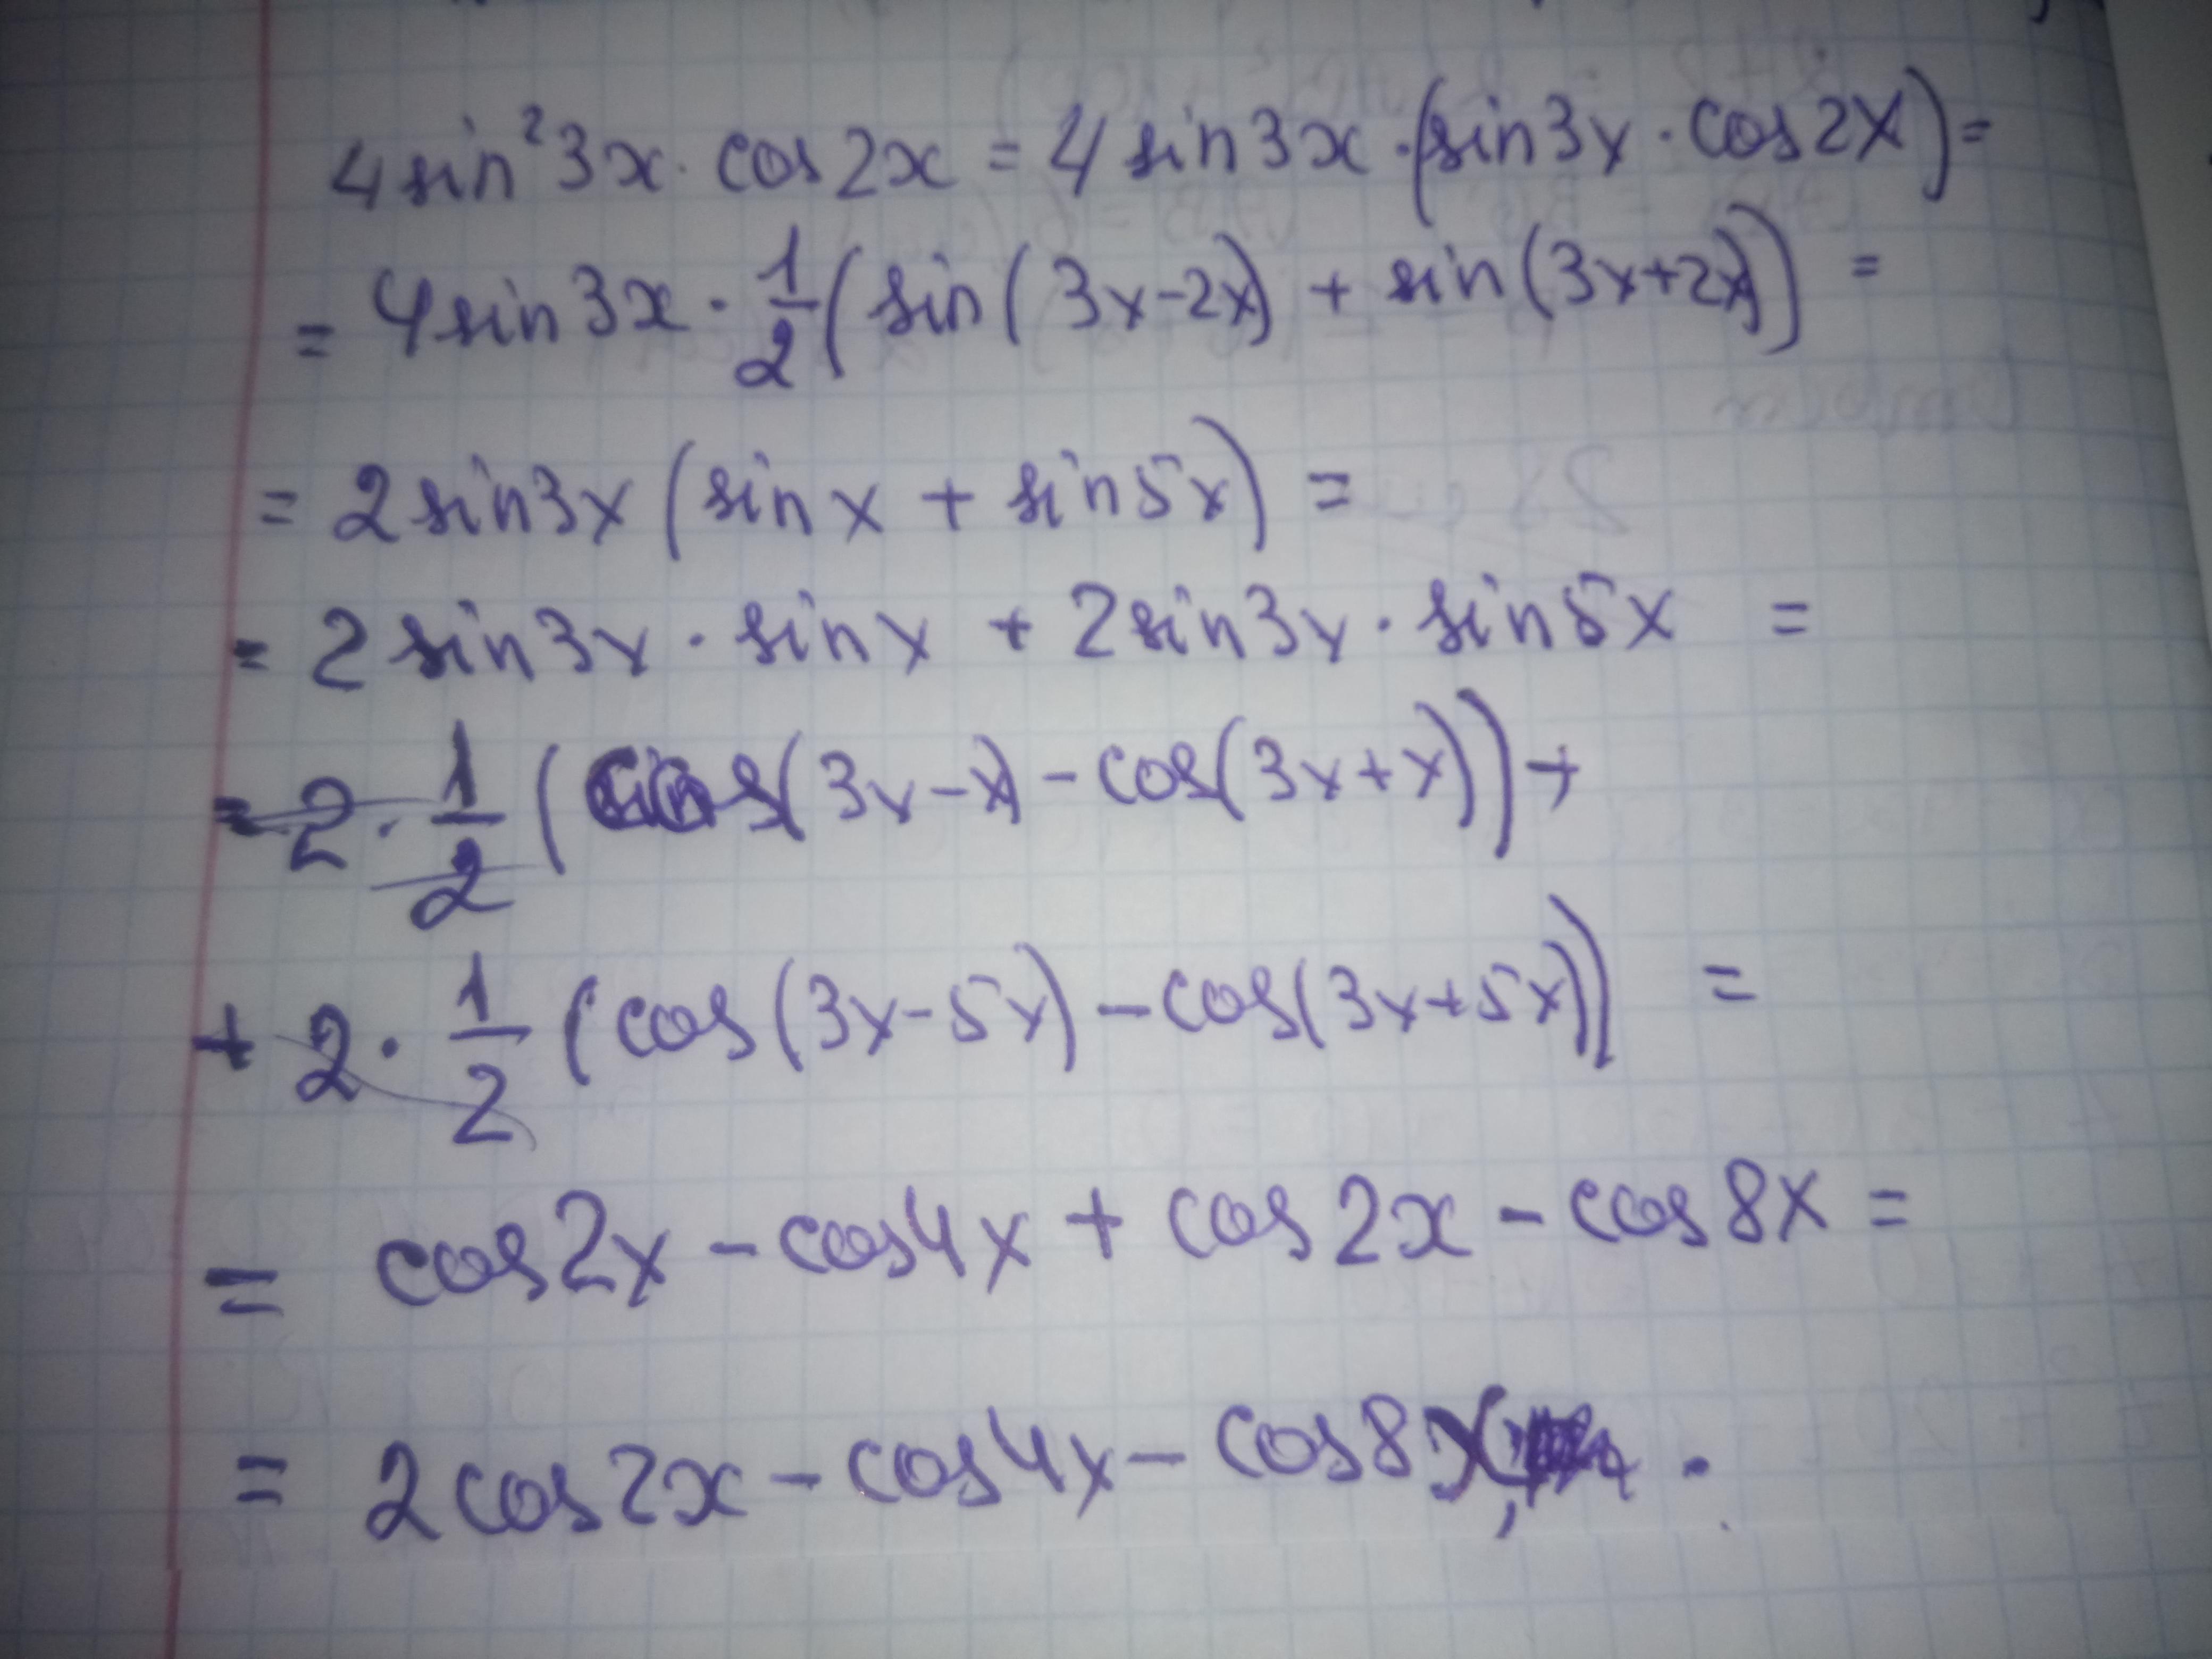 4 sin²3x · cos2x = 4 sin3x · (sin3x · cos2x) =
= 4 sin3x · 1/2 (sin(3x-2x) + sin(3x+2x)) =
= 2 sin3x (sin x + sin5x) =
= 2 sin3x · sin x + 2 sin3x · sin5x =
= 2 · 1/2 (cos(3x-x) - cos(3x+x)) +
+ 2 · 1/2 (cos(3x-5x) - cos(3x+5x)) =
= cos2x - cos4x + cos2x - cos8x =
= 2cos2x - cos4x - cos8x.